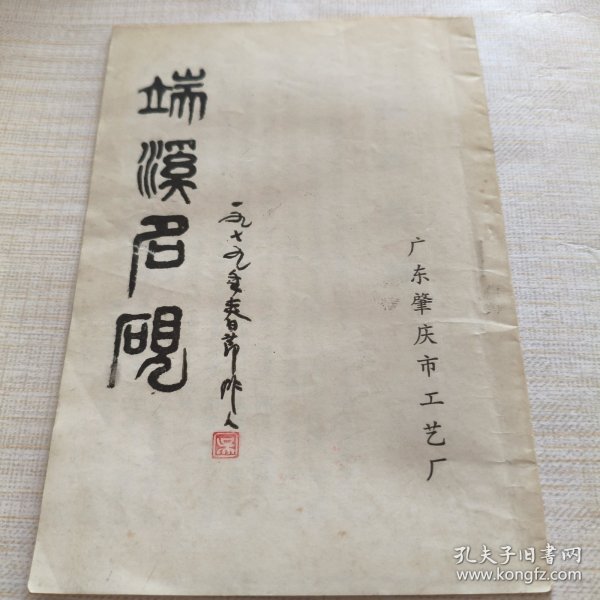 端溪名硯
一九七九年春节
广东肇庆市工艺厂
孔夫子旧书网
www.kongfz.com